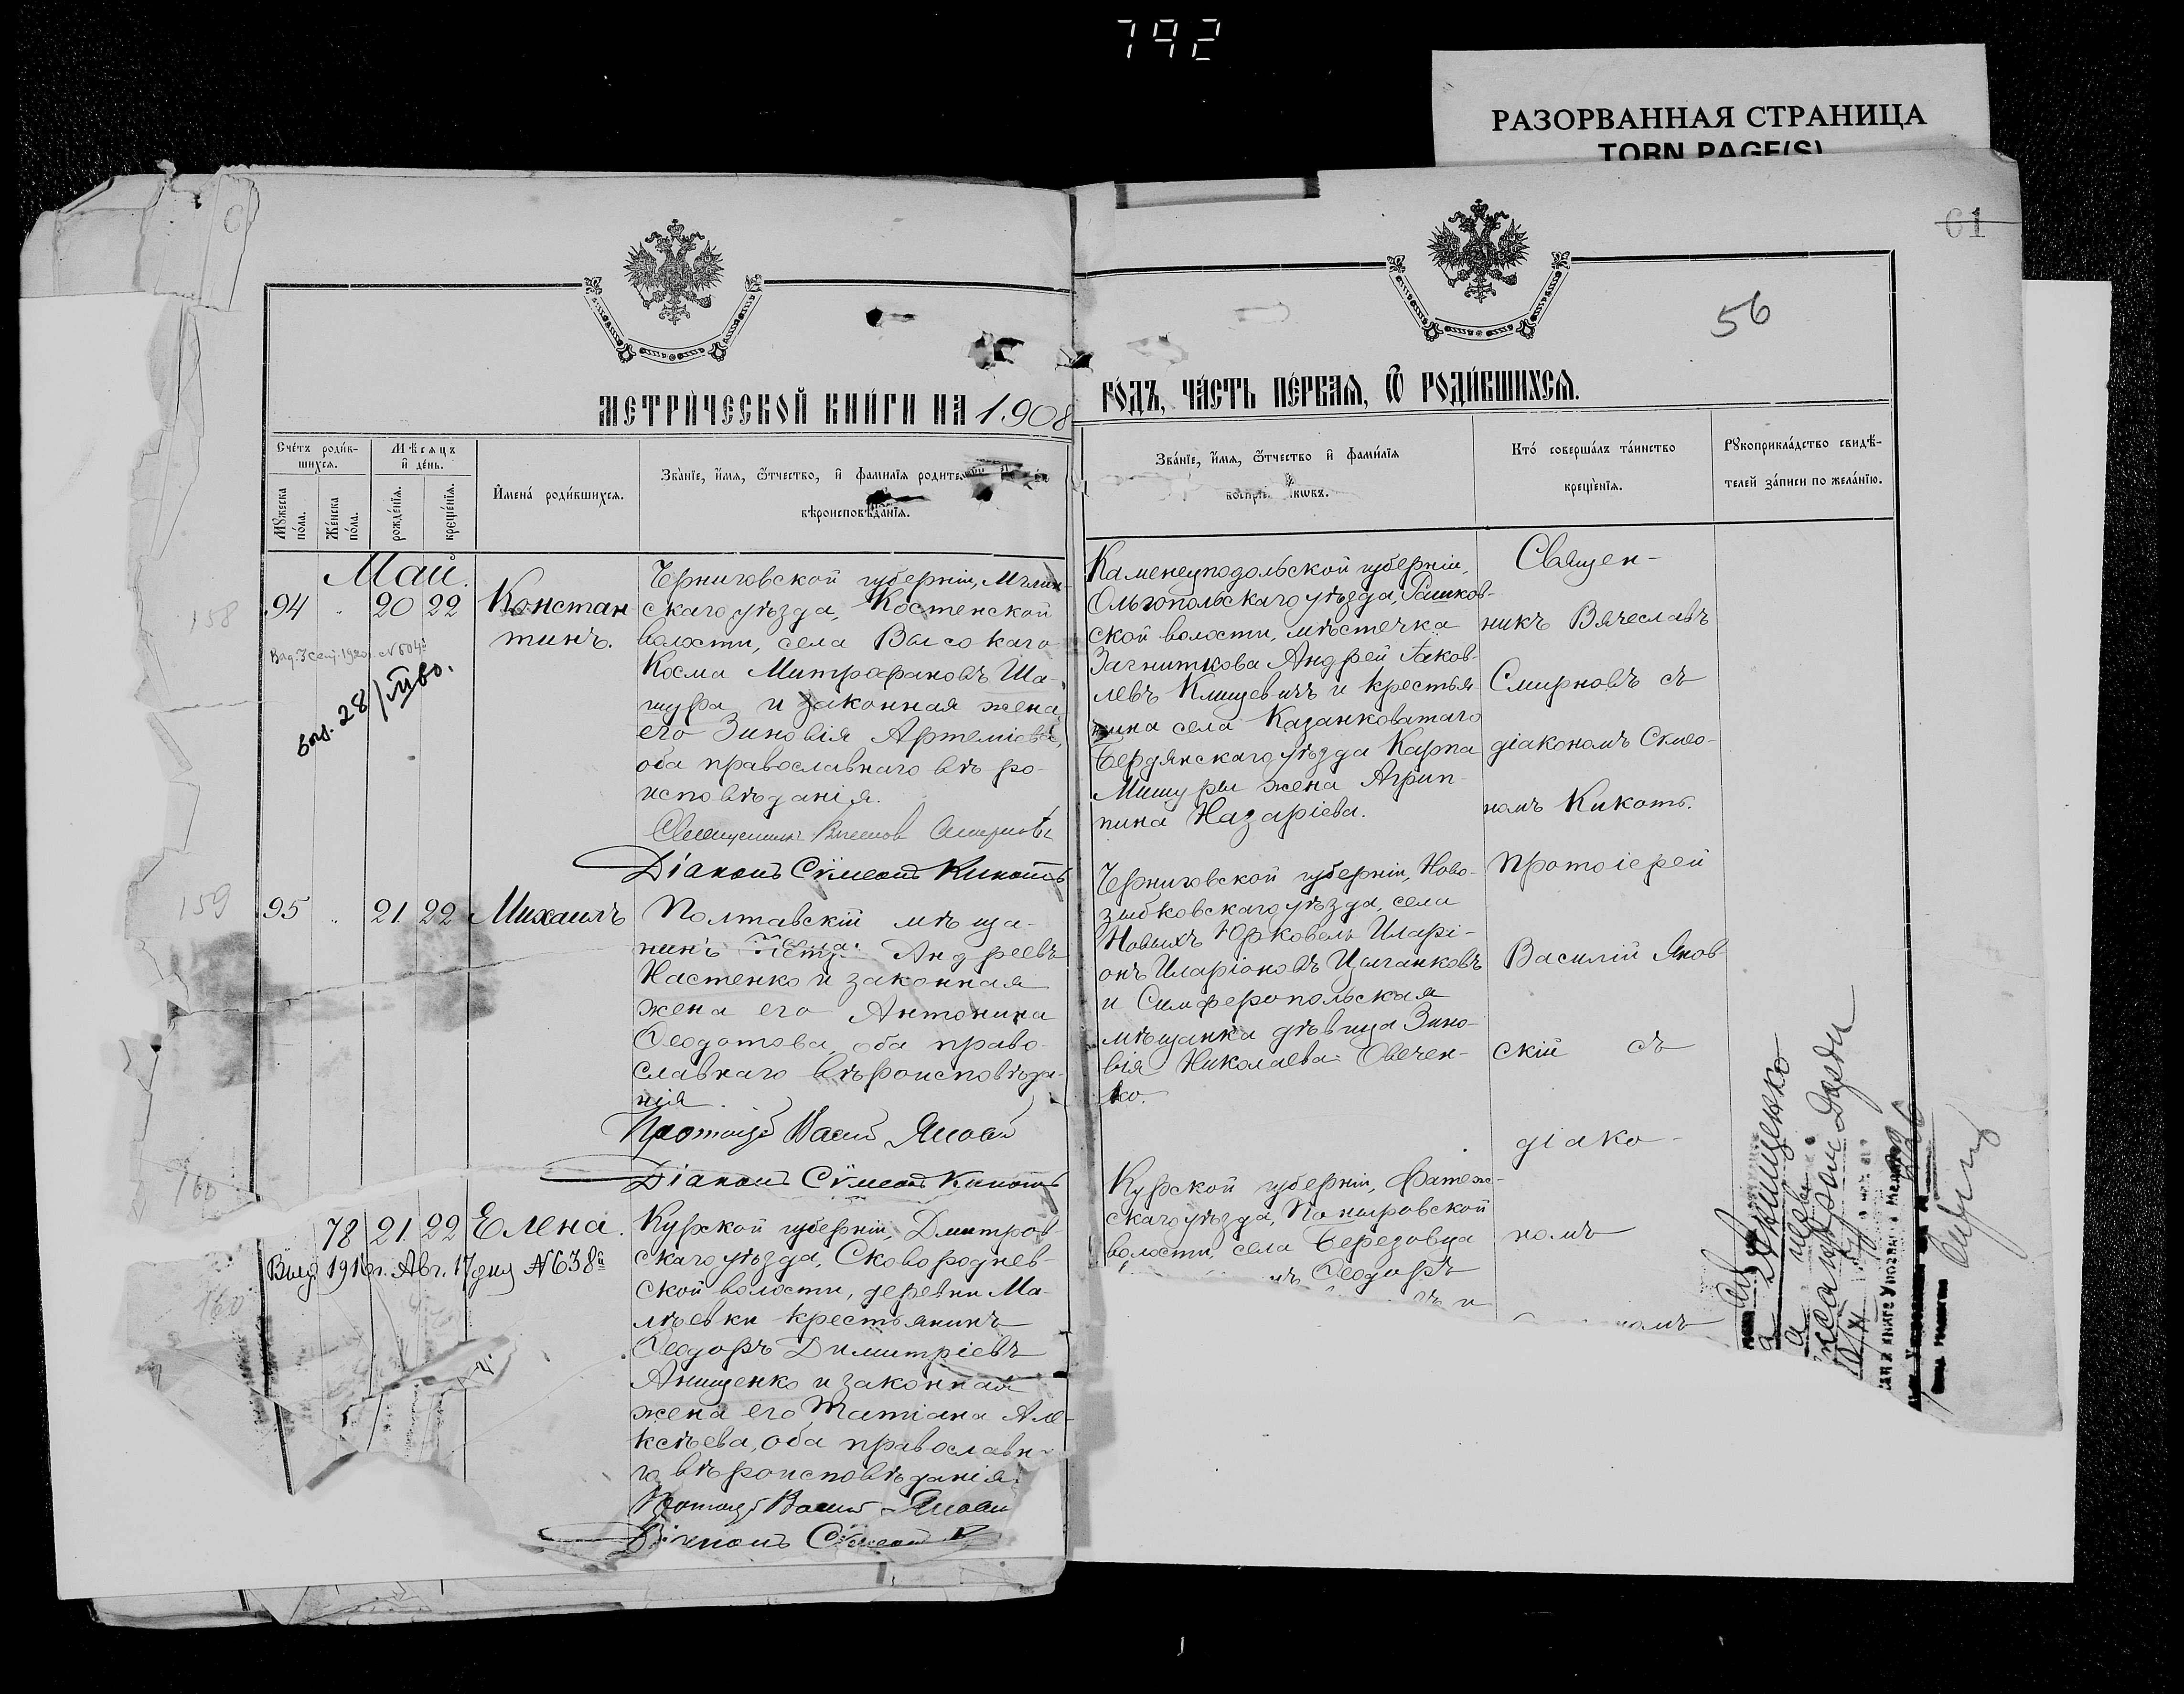 792
РАЗОРВАННАЯ СТРАНИЦА
TORN PAGE(S)
61
56
МЕТРИ́ЧЕСКОЙ КНИ́ГИ НА 1908
ГО́ДЪ, ЧА́СТЬ ПЕ́РВАЯ, Ѿ РОДИ́ВШИХСЯ.
Сче́тъ роди́в-
шихся.
Мѣсяцъ
и де́нь.
Мꙋжеска по́ла.
Же́нска по́ла.
рожде́нїя.
креще́нїя.
Имена́ роди́вшихся.
Зва́нїе, и́мя, ѻ́тчество, и фами́лїя
вѣроисповѣ́данїя.
Зва́нїе, и́мя, ѻ́тчество и фами́лїя
Кто́ соверша́лъ та́инство
креще́нїя.
Рꙋкоприкла́дство свидѣ́-
телей за́писи по жела́нїю.
Май.
158
94 " 20 22
Констан
тинъ.
Черниговской губерніи, Мглин-
скаго уѣзда, Костенской
волости, села Высокаго
Косма Митрофановъ Ша-
шура и законная жена
его Зиновія Артеміева,
оба православнаго вѣро-
исповѣданія.
Діаконъ Сѵмеонъ Кикоть
Каменецподольской губерніи,
Ольгопольскаго уѣзда, Рашков-
ской волости, мѣстечка
Загниткова Андрей Іаков-
левъ Клищевичъ и крестья
нина села Казанковатаго
Бердянскаго уѣзда Карпа
Мишуры жена Агрип-
пина Назаріева.
Священ-
никъ Вячеславъ
Смирновъ съ
діакономъ Сѵмео-
номъ Кикоть.
159
95 " 21 22
Михаилъ
Полтавскій мѣща-
нинъ Андреевъ
Настенко и законная
жена его Антонина
Ѳеодотова, оба право-
славнаго вѣроисповѣда-
нія.
Діаконъ Сѵмеонъ Кикоть
Черниговской губерніи, Ново-
зыбковскаго уѣзда, села
Новыхъ Юрковичъ Иларі-
онъ Иларіоновъ Цыганковъ
и Симферопольская
мѣщанка дѣвица Зино-
вія Николаева Овечен-
ко.
Протоіерей
Василій Янов-
скій съ
діако-
номъ
160
78 21 22
Елена.
Выд. 1916 г. Авг. 17 дня №638й
160
Курской губерніи, Дмитров-
скаго уѣзда, Сковороднев-
ской волости, деревни Ма-
лѣевки крестьянинъ
Ѳеодоръ Димитріевъ
Анищенко и законная
жена его Татіана Але-
ксѣева, оба православн
го вѣроисповѣданія.
Діаконъ Сѵмеонъ
Курской губерніи, Фатеж-
скаго уѣзда, Поныровской
волости, села Березовца
Ѳеодоръ